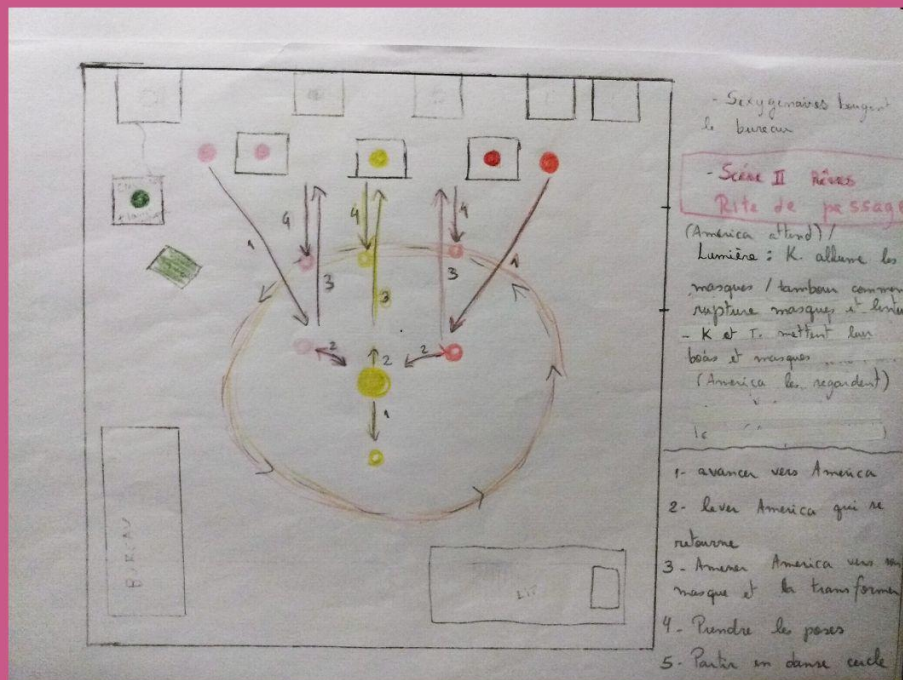 - Sexygenaires bougent
le bureau
- Scène II Rêves
Rite de passage
(America attend)/
Lumière : K. allume les
masques / tambour commen
rupture masques et
- K et T. mettent leur
boas et masques
(America les regardent)
1
1
4
4
4
3
3
3
2
2
2
1
BUREAU
LIT
1- avancer vers America
2- lever America qui se
retourne
3- Amener America vers
masque et la transformer
4- Prendre les poses
5- Partir en danse cercle